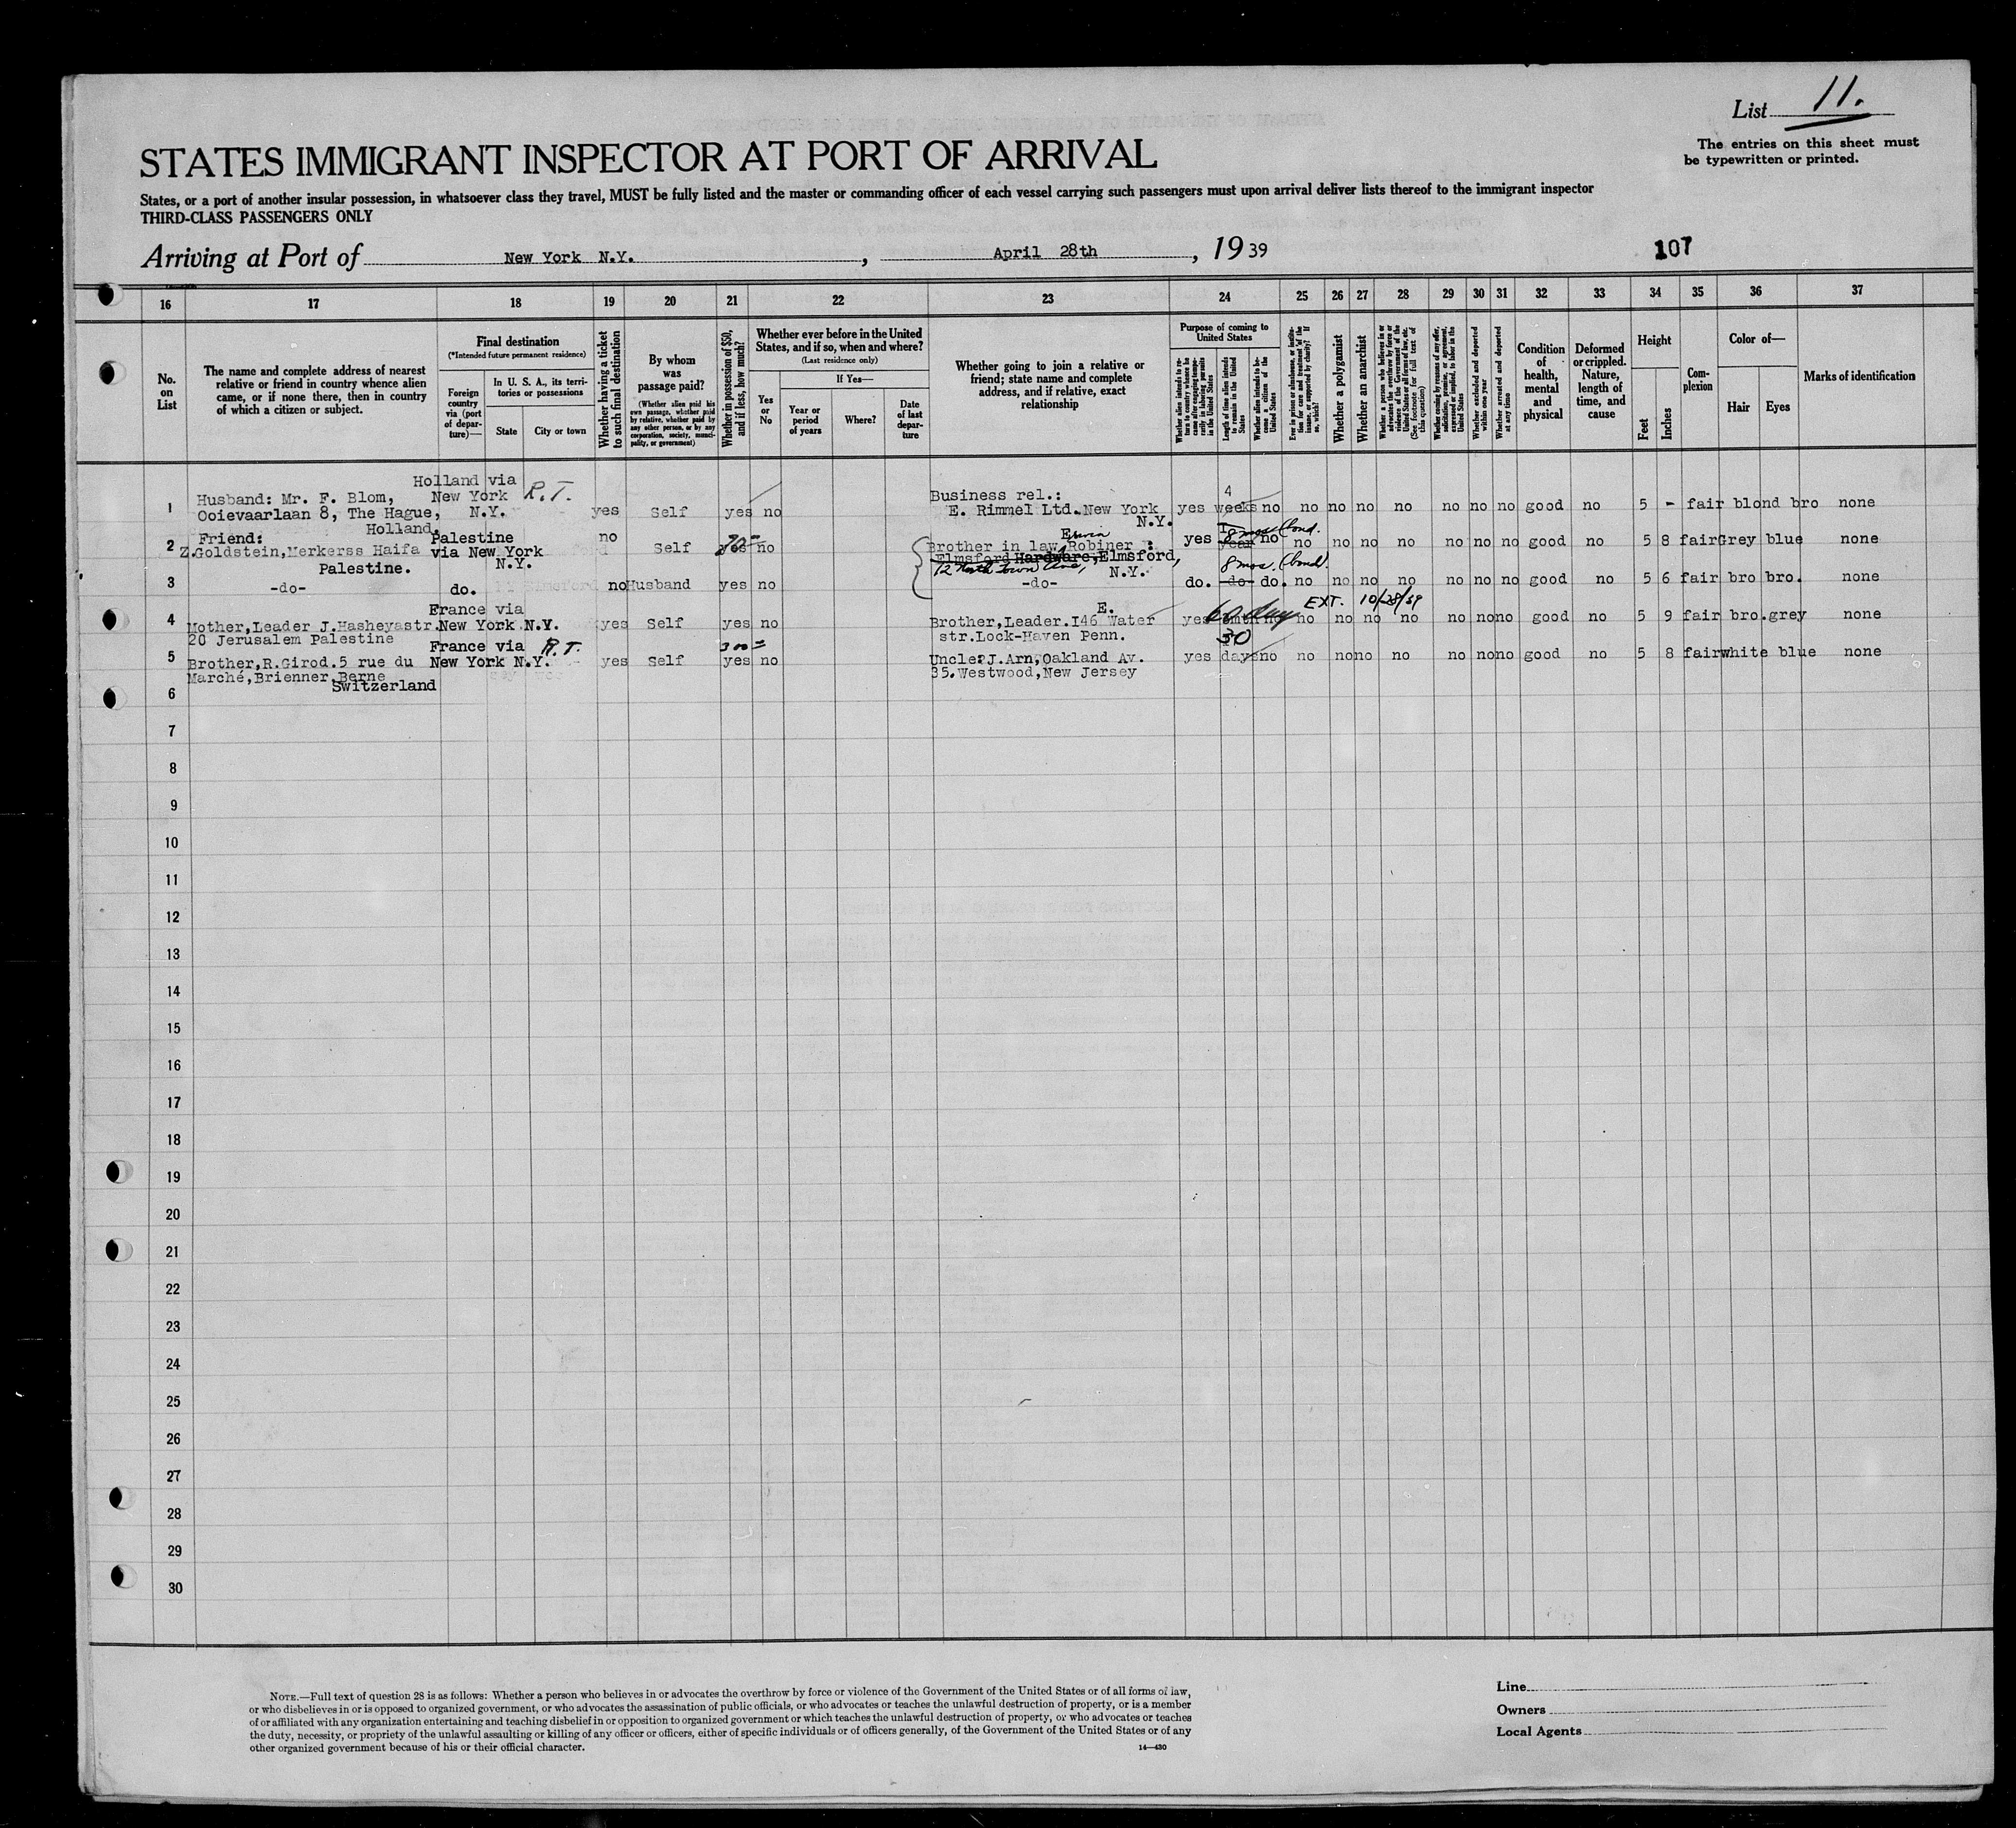 List 11.
The entries on this sheet must
be typewritten or printed.
STATES IMMIGRANT INSPECTOR AT PORT OF ARRIVAL
States, or a port of another insular possession, in whatsoever class they travel, MUST be fully listed and the master or commanding officer of each vessel carrying such passengers must upon arrival deliver lists thereof to the immigrant inspector
THIRD-CLASS PASSENGERS ONLY
Arriving at Port of New York N.Y. , April 28th , 19 39
107
16 17 18 19 20 21 22 23 24 25 26 27 28 29 30 31 32 33 34 35 36 37
No. on List
The name and complete address of nearest
relative or friend in country whence alien
came, or if none there, then in country
of which a citizen or subject.
Final destination
(*Intended future permanent residence)
Foreign country via (port of departure)—
In U. S. A., its territories or possessions
State
City or town
Whether having a ticket to such final destination
By whom was passage paid?
(Whether alien paid his own passage, whether paid by relative, whether paid by any other person, or by any corporation, society, municipality, or government)
Whether in possession of $50, and if less, how much?
Whether ever before in the United States, and if so, when and where?
(Last residence only)
Yes or No
If Yes—
Year or period of years
Where?
Date of last departure
Whether going to join a relative or
friend; state name and complete
address, and if relative, exact
relationship
Purpose of coming to United States
Whether alien intends to return to country whence he came after engaging temporarily in laboring pursuits in the United States
Length of time alien intends to remain in the United States
Whether alien intends to become a citizen of the United States
Ever in prison or almshouse, or institution for care and treatment of the insane, or supported by charity? If so, which?
Whether a polygamist
Whether an anarchist
Whether a person who believes in or advocates the overthrow by force or violence of the Government of the United States or all forms of law, etc. (See footnote for full text of this question)
Whether coming by reason of any offer, solicitation, promise, or agreement, expressed or implied, to labor in the United States
Whether excluded and deported within one year
Whether arrested and deported at any time
Condition of health, mental and physical
Deformed or crippled. Nature, length of time, and cause
Height
Feet
Inches
Complexion
Color of—
Hair
Eyes
Marks of identification
Holland via
1 Husband: Mr. F. Blom, New York R.T. Business rel.: 4
Ooievaarlaan 8, The Hague, N.Y. yes Self yes no E. Rimmel Ltd. New York yes weeks no no no no no no no no good no 5 - fair blond bro none
Holland. N.Y.
Friend: Palestine no Erwin
2 Z.Goldstein,Merkerss Haifa via New York Self 70= yes no Brother in law Robiner : yes 8 mos (bond. year no no no no no no no no good no 5 8 fair Grey blue none
N.Y. Elmsford Hardware, Elmsford,
Palestine. 12 North Town Ave, N.Y. 8 mos. (bond)
3 -do- do. no Husband yes no -do- do. -do- do. no no no no no no no good no 5 6 fair bro bro. none
France via E. EXT. 10/28/39
4 Mother,Leader J.Hasheyastr. New York N.Y. yes Self yes no Brother,Leader.I46 Water yes 60 days no no no no no no no no good no 5 9 fair bro.grey none
20 Jerusalem Palestine str.Lock-Haven Penn.
France via R.T. 300= 30
5 Brother,R.Girod.5 rue du New York N.Y. yes Self yes no Uncle: J.Arn,Oakland Av. yes days no no no no no no no no good no 5 8 fair white blue none
Marché,Brienner,Berne 35.Westwood,New Jersey
Switzerland
6
7
8
9
10
11
12
13
14
15
16
17
18
19
20
21
22
23
24
25
26
27
28
29
30
NOTE.—Full text of question 28 is as follows: Whether a person who believes in or advocates the overthrow by force or violence of the Government of the United States or of all forms of law,
or who disbelieves in or is opposed to organized government, or who advocates the assassination of public officials, or who advocates or teaches the unlawful destruction of property, or is a member
of or affiliated with any organization entertaining and teaching disbelief in or opposition to organized government or which teaches the unlawful destruction of property, or who advocates or teaches
the duty, necessity, or propriety of the unlawful assaulting or killing of any officer or officers, either of specific individuals or of officers generally, of the Government of the United States or of any
other organized government because of his or their official character.
14—430
Line
Owners
Local Agents